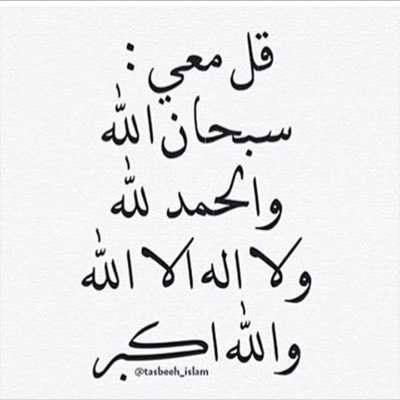 قل معي :
سبحان الله
والحمد لله
ولا اله الا الله
والله اكبر
@tasbeeh_islam